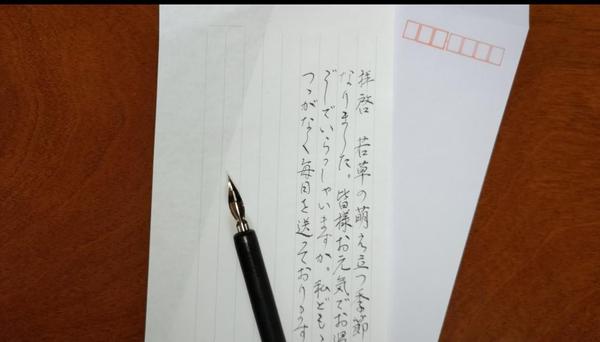 拝啓 若草の萌え立つ季節
なりました。皆様お元気でお過
ごしでいらっしゃいますか。私ども
つつがなく毎日を送っております